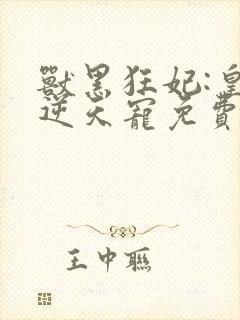 獸黑狂妃:皇
逆天寵免費
王中聯